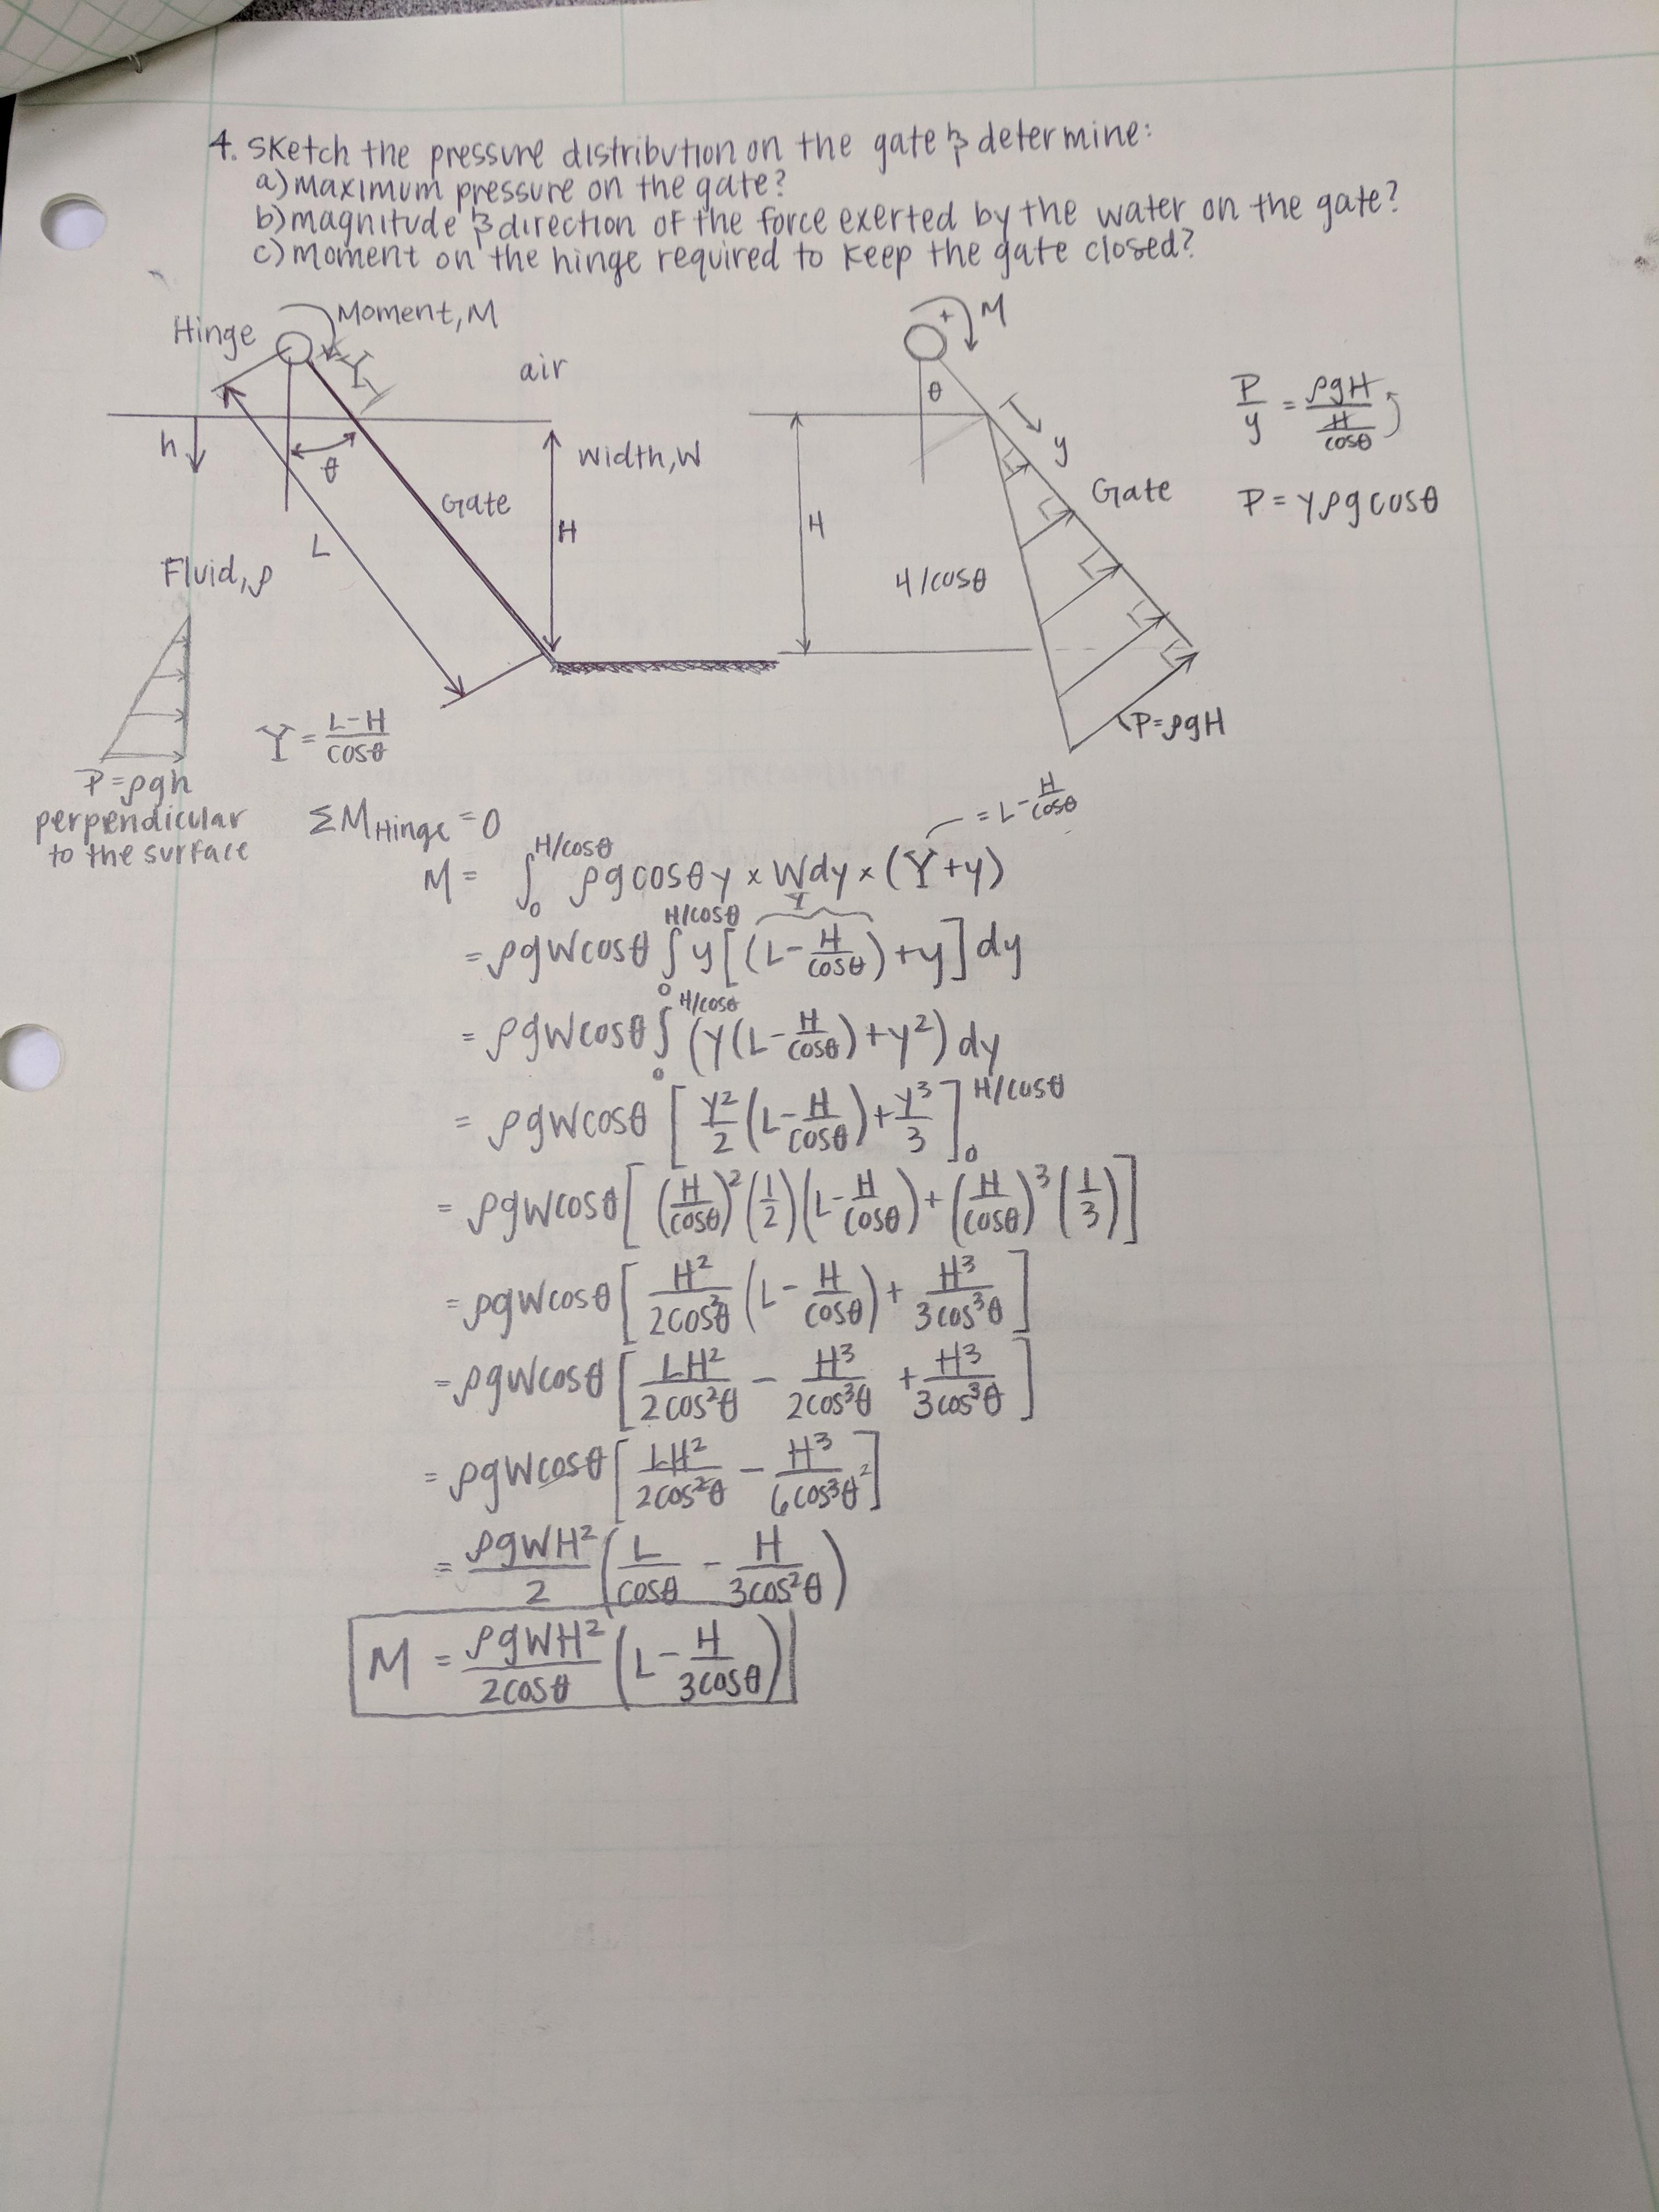 4. Sketch the pressure distribution on the gate & determine:
a) maximum pressure on the gate?
b) magnitude & direction of the force exerted by the water on the gate?
c) moment on the hinge required to keep the gate closed?
Hinge
Moment, M
Y
air
h
θ
Width, W
Gate
H
L
Fluid, ρ
P=ρgh
perpendicular
to the surface
Y = (L-H)/cosθ
+ M
θ
y
H
Gate
H/cosθ
P=ρgH
P/y = ρgH/(H/cosθ)
P = yρgcosθ
ΣM Hinge = 0
= L - H/cosθ
M = ∫₀^(H/cosθ) ρgcosθy × Wdy × (Y+y)
Y
= ρgWcosθ ∫₀^(H/cosθ) y[(L - H/cosθ) + y] dy
= ρgWcosθ ∫₀^(H/cosθ) (y(L - H/cosθ) + y²) dy
= ρgWcosθ [y²/2 (L - H/cosθ) + y³/3]₀^(H/cosθ)
= ρgWcosθ [(H/cosθ)² (1/2) (L - H/cosθ) + (H/cosθ)³ (1/3)]
= ρgWcosθ [H²/2cos²θ (L - H/cosθ) + H³/3cos³θ]
= ρgWcosθ [LH²/2cos²θ - H³/2cos³θ + H³/3cos³θ]
= ρgWcosθ [LH²/2cos²θ - H³/6cos³θ ²]
= ρgWH²/2 (L/cosθ - H/3cos²θ)
M = ρgWH²/2cosθ (L - H/3cosθ)